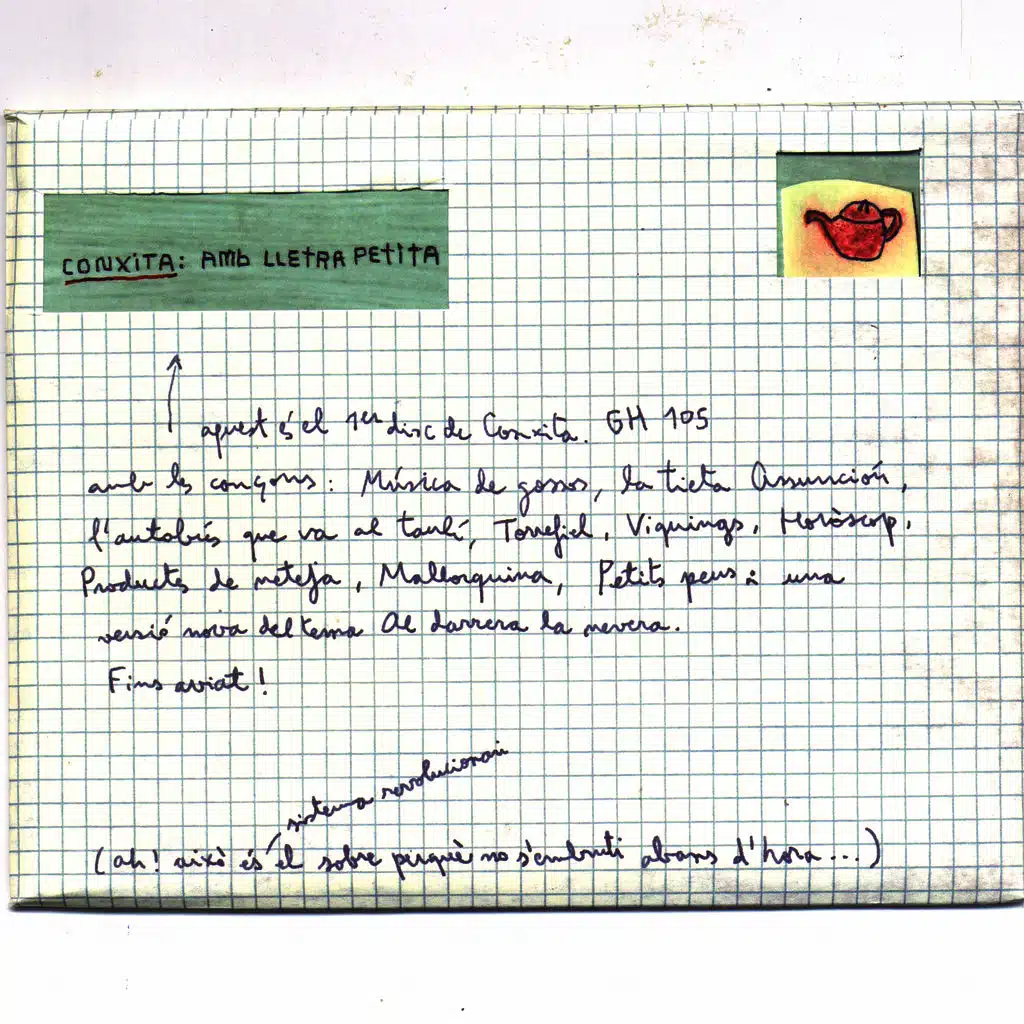 CONXITA: AMB LLETRA PETITA
aquest és el 1er disc de Conxita. GH 105
amb les cançons: Música de gossos, la tieta Assunción,
l'autobús que va al taulí, Torrefiel, Viquings, Horòscop,
Productes de neteja, Mallorquina, Petits peus i una
versió nova del tema Al darrera la nevera.
Fins aviat!
sistema revolucionari
(ah! això és el sobre perquè no s'embruti abans d'hora...)